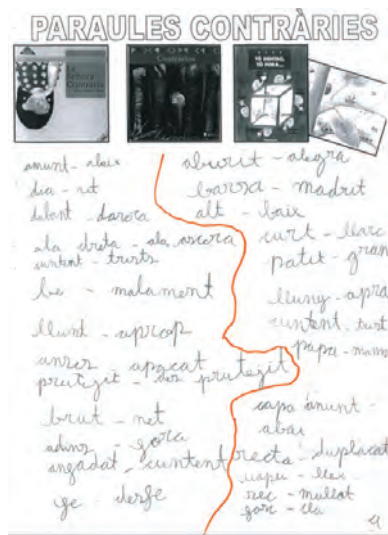 PARAULES CONTRÀRIES
La Señora Contraria
Contrarios
YO DENTRO, TÚ FUERA...
amunt - abaix
dia - nit
dabant - darora
ala dreta - ala
cuntent - trists
be - malament
lluñ - aprop
apagat
prutegit - des prutegit
brut - net
adins - fora
angadat - cuntent
fe - desfe
aburit - alegra
barsa - madrit
alt - baix
curt - llarc
patit - gran
lluny - apra
cuntent - trist
papa - mama
capa amunt -
abai
recta - duplacat
sec - mullat